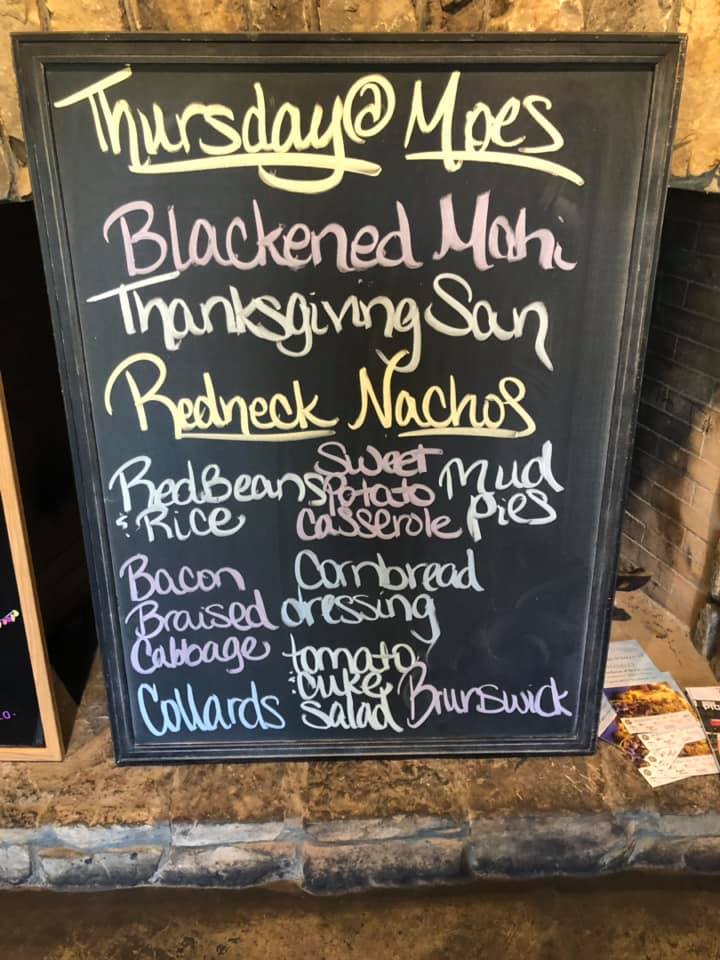 Thursday@Moes
Blackened Mahi
Thanksgiving San
Redneck Nachos
Red Beans
& Rice
Sweet
Potato
Casserole
Mud
Pies
Bacon
Braised
Cabbage
Cornbread
dressing
Collards
tomato
cuke
salad
Brunswick